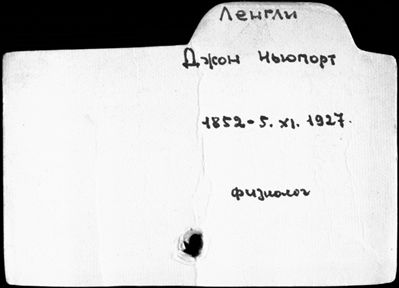 Ленгли
Джон Ньюпорт
1852-5. XI. 1927.
физиолог